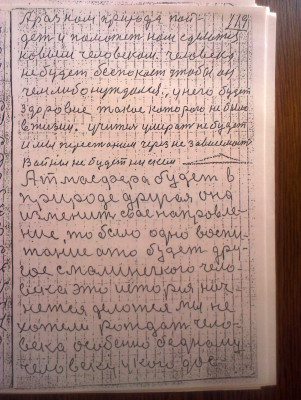 А раз к нам природа пой
дет и поможет нам сделатся
новым человеком. человека
небудет беспокоить чтобы он
чем либо нуждался, у него будет
здоровие такое которого не было
в жизни. учится умирать не будет
и мы перестанем через не зависимость
Войны не будет ни с кем
119
Атмасфера будет в
природе другая она
изменит свое направле-
ние, то было одно воспи-
тание а то будет дру-
гое с маленького чело-
века эта история нач-
нется делатся мы не
хотели рождат чело-
века особенно бедному
человеку и кого до